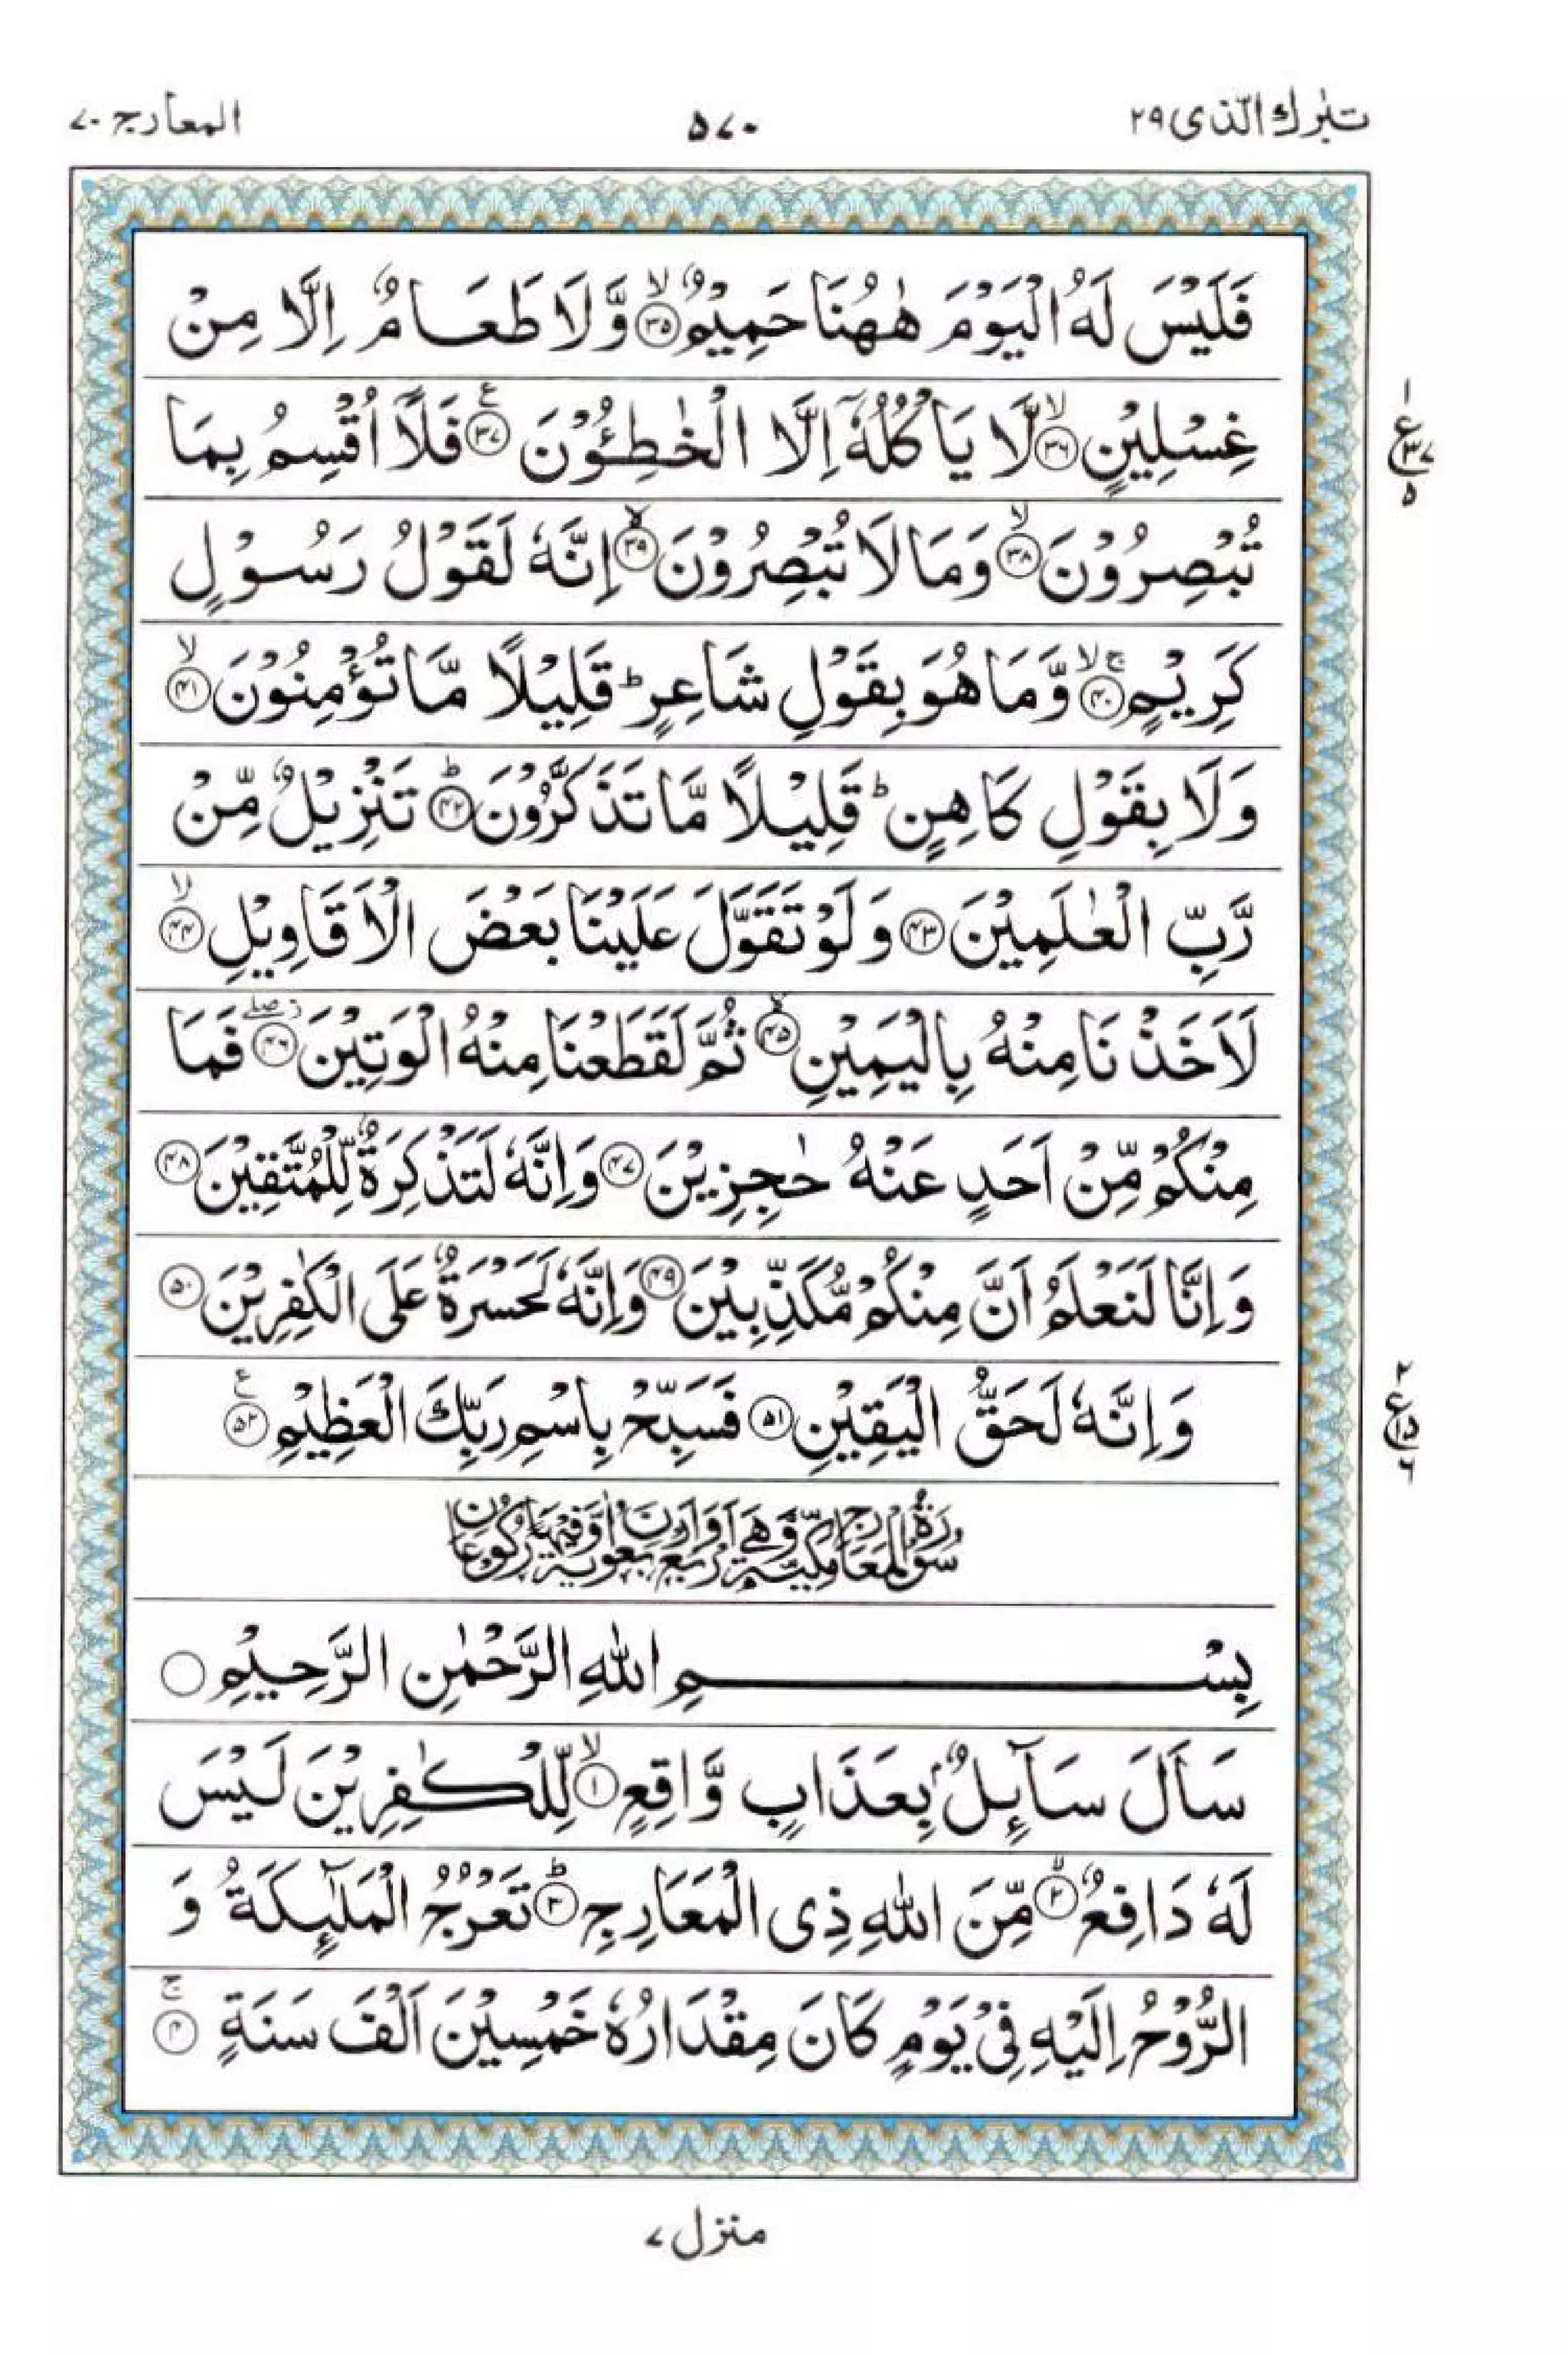 تبٰرك الّذى ٢٩
٥٧٠
المعارج ٧٠
فَلَيْسَ لَهُ الْيَوْمَ هٰهُنَا حَمِيْمٌۙ ﴿٣٥﴾ وَّلَا طَعَامٌ اِلَّا مِنْ
غِسْلِيْنٍۙ ﴿٣٦﴾ لَّا يَاْكُلُهٗۤ اِلَّا الْخٰطِـُٔوْنَ ﴿٣٧﴾ع فَلَاۤ اُقْسِمُ بِمَا
تُبْصِرُوْنَۙ ﴿٣٨﴾ وَمَا لَا تُبْصِرُوْنَۙ ﴿٣٩﴾ اِنَّهٗ لَقَوْلُ رَسُوْلٍ
كَرِيْمٍۚۙ ﴿٤٠﴾ وَّمَا هُوَ بِقَوْلِ شَاعِرٍؕ قَلِيْلًا مَّا تُؤْمِنُوْنَۙ ﴿٤١﴾
وَلَا بِقَوْلِ كَاهِنٍؕ قَلِيْلًا مَّا تَذَكَّرُوْنَؕ ﴿٤٢﴾ تَنْزِيْلٌ مِّنْ
رَّبِّ الْعٰلَمِيْنَ ﴿٤٣﴾ وَلَوْ تَقَوَّلَ عَلَيْنَا بَعْضَ الْاَقَاوِيْلِۙ ﴿٤٤﴾
لَاَخَذْنَا مِنْهُ بِالْيَمِيْنِۙ ﴿٤٥﴾ ثُمَّ لَقَطَعْنَا مِنْهُ الْوَتِيْنَۖ ﴿٤٦﴾ فَمَا
مِنْكُمْ مِّنْ اَحَدٍ عَنْهُ حٰجِزِيْنَ ﴿٤٧﴾ وَاِنَّهٗ لَتَذْكِرَةٌ لِّلْمُتَّقِيْنَ ﴿٤٨﴾
وَاِنَّا لَنَعْلَمُ اَنَّ مِنْكُمْ مُّكَذِّبِيْنَ ﴿٤٩﴾ وَاِنَّهٗ لَحَسْرَةٌ عَلَى الْكٰفِرِيْنَ ﴿٥٠﴾
وَاِنَّهٗ لَحَقُّ الْيَقِيْنِ ﴿٥١﴾ فَسَبِّحْ بِاسْمِ رَبِّكَ الْعَظِيْمِ ﴿٥٢﴾ع
سُوْرَةُ الْمَعَارِجِ مَكِّيَّةٌ وَّهِيَ اَرْبَعٌ وَّاَرْبَعُوْنَ اٰيَةً وَّفِيْهَا رُكُوْعَانِ
بِسْمِ اللهِ الرَّحْمٰنِ الرَّحِيْمِ ○
سَاَلَ سَآئِلٌۢ بِعَذَابٍ وَّاقِعٍۙ ﴿١﴾ لِّلْكٰفِرِيْنَ لَيْسَ
لَهٗ دَافِعٌۙ ﴿٢﴾ مِّنَ اللهِ ذِى الْمَعَارِجِؕ ﴿٣﴾ تَعْرُجُ الْمَلٰٓئِكَةُ وَ
الرُّوْحُ اِلَيْهِ فِيْ يَوْمٍ كَانَ مِقْدَارُهٗ خَمْسِيْنَ اَلْفَ سَنَةٍۚ ﴿٤﴾
١ ع ٣٧ ٥
٢ ع ١٥ ٦
منزل ٧